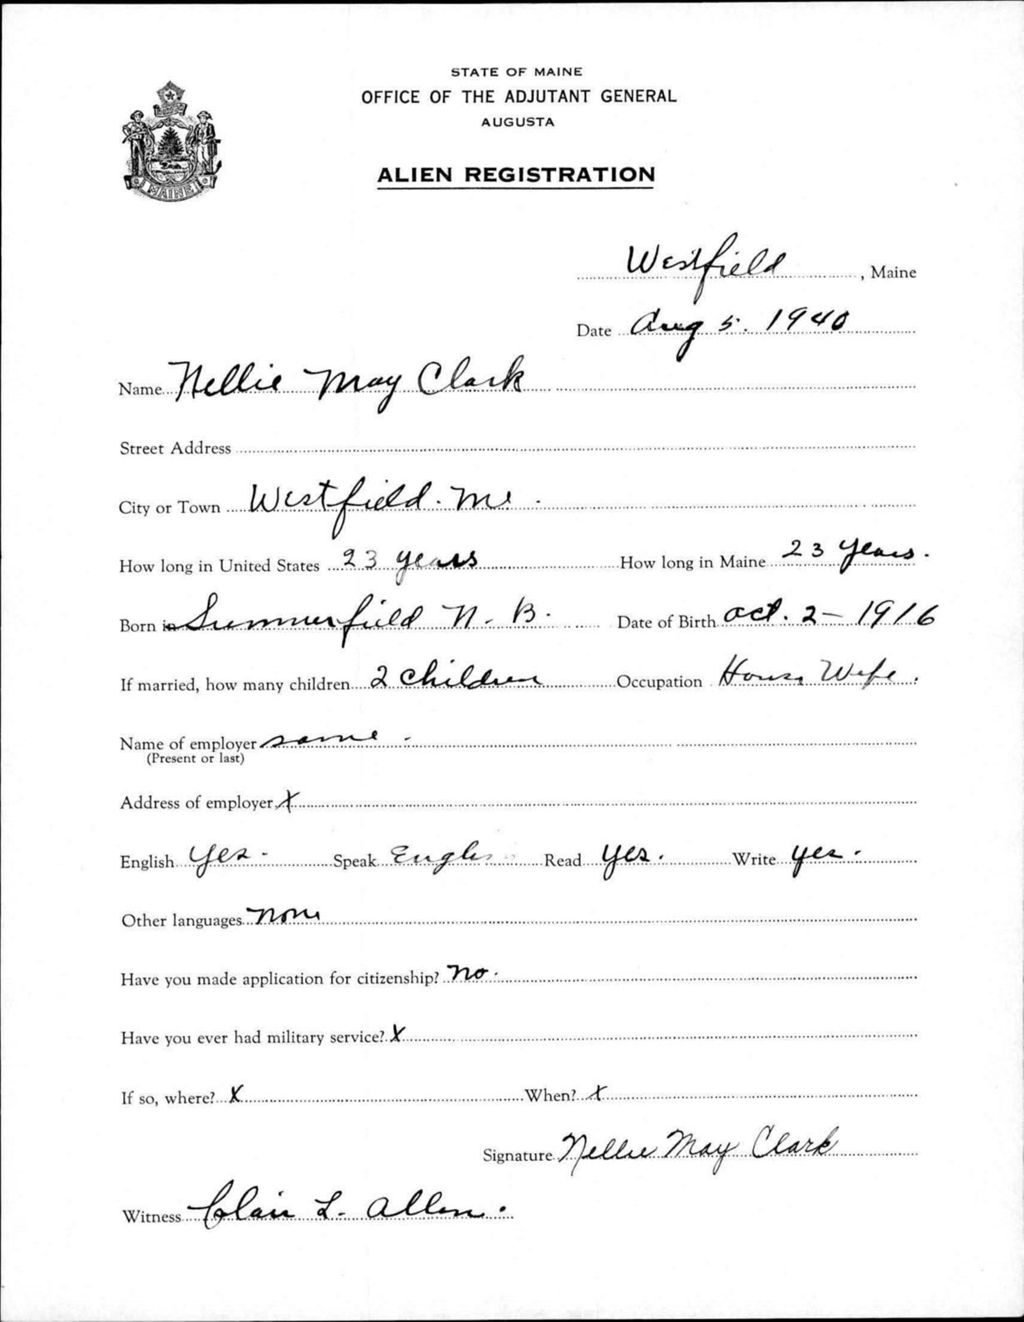 STATE OF MAINE
OFFICE OF THE ADJUTANT GENERAL
AUGUSTA
ALIEN REGISTRATION
MAINE
Westfield, Maine
Date Aug 5. 1940
Name Nellie May Clark
Street Address
City or Town Westfield. Me.
How long in United States 23 years How long in Maine 23 years.
Born in Summerfield N. B. Date of Birth Oct. 2 - 1916
If married, how many children 2 children Occupation House Wife.
Name of employer same.
(Present or last)
Address of employer X
English Yes. Speak Englis Read yes. Write yes.
Other languages none
Have you made application for citizenship? no.
Have you ever had military service? X
If so, where? X When? X
Signature Nellie May Clark
Witness Clair L. Allen.